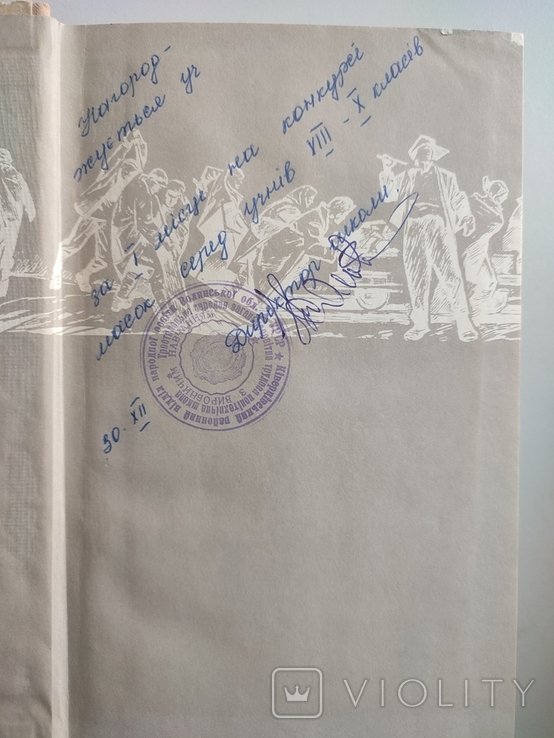 Нагород-
жується уч
за I місце на конкурсі
масок серед учнів VIII - X класів
Директор школи:
30. XII
Ківерцівський районний відділ народної освіти Волинської обл. УРСР
З ВИРОБНИЧИМ НАВЧАННЯМ
VIOLITY